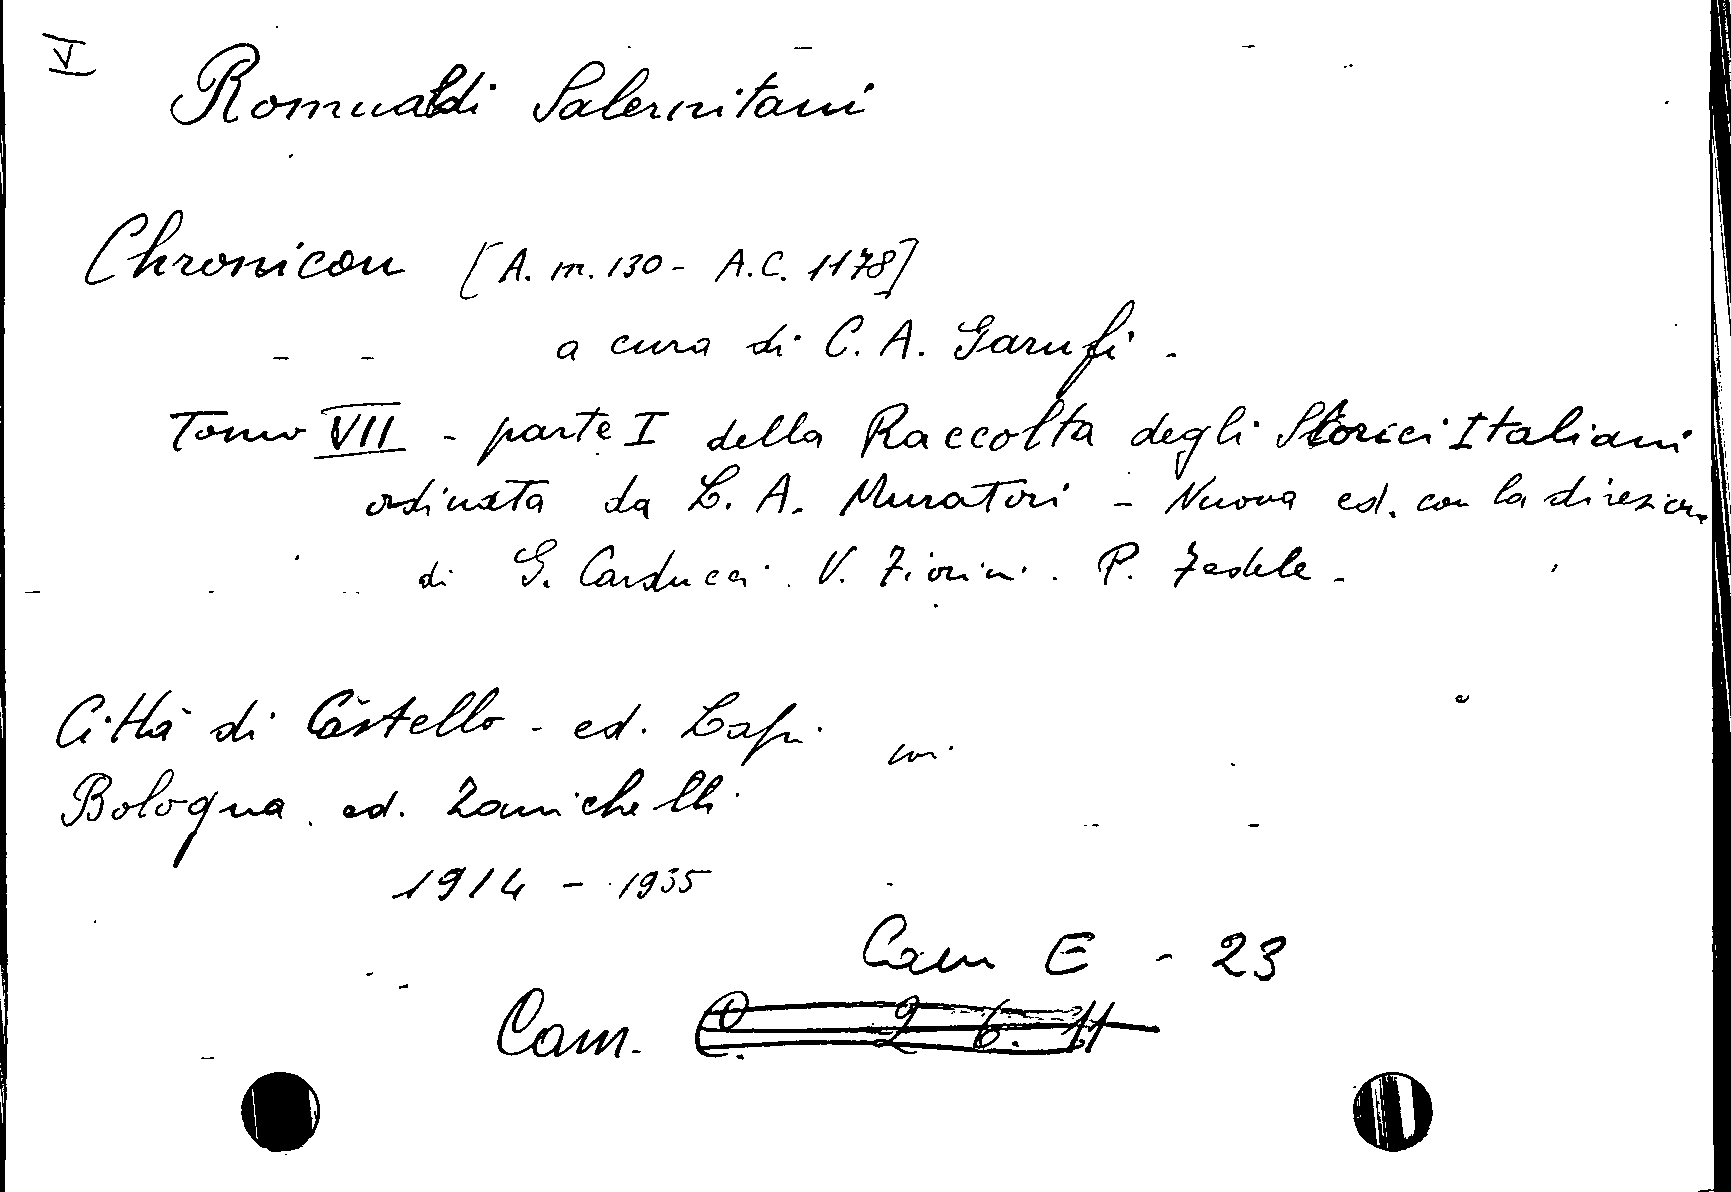 V
Romualdi Salernitani
Chronicon [A. m. 130 - A.C. 1178]
a cura di C. A. Garufi.
Tomo VII - parte I della Raccolta degli Storici Italiani
ordinata da L. A. Muratori - Nuova ed. con la direzione
di G. Carducci. V. Fiorini. P. Fedele.
Città di Castello - ed. Lapi
Bologna. ed. Zanichelli
1914 - 1935
Cam E - 23
Cam. C. 2 6. 11